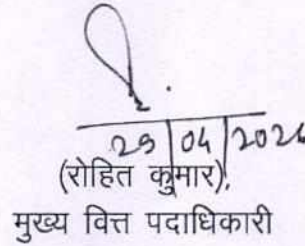 29/04/2024
(रोहित कुमार),
मुख्य वित्त पदाधिकारी